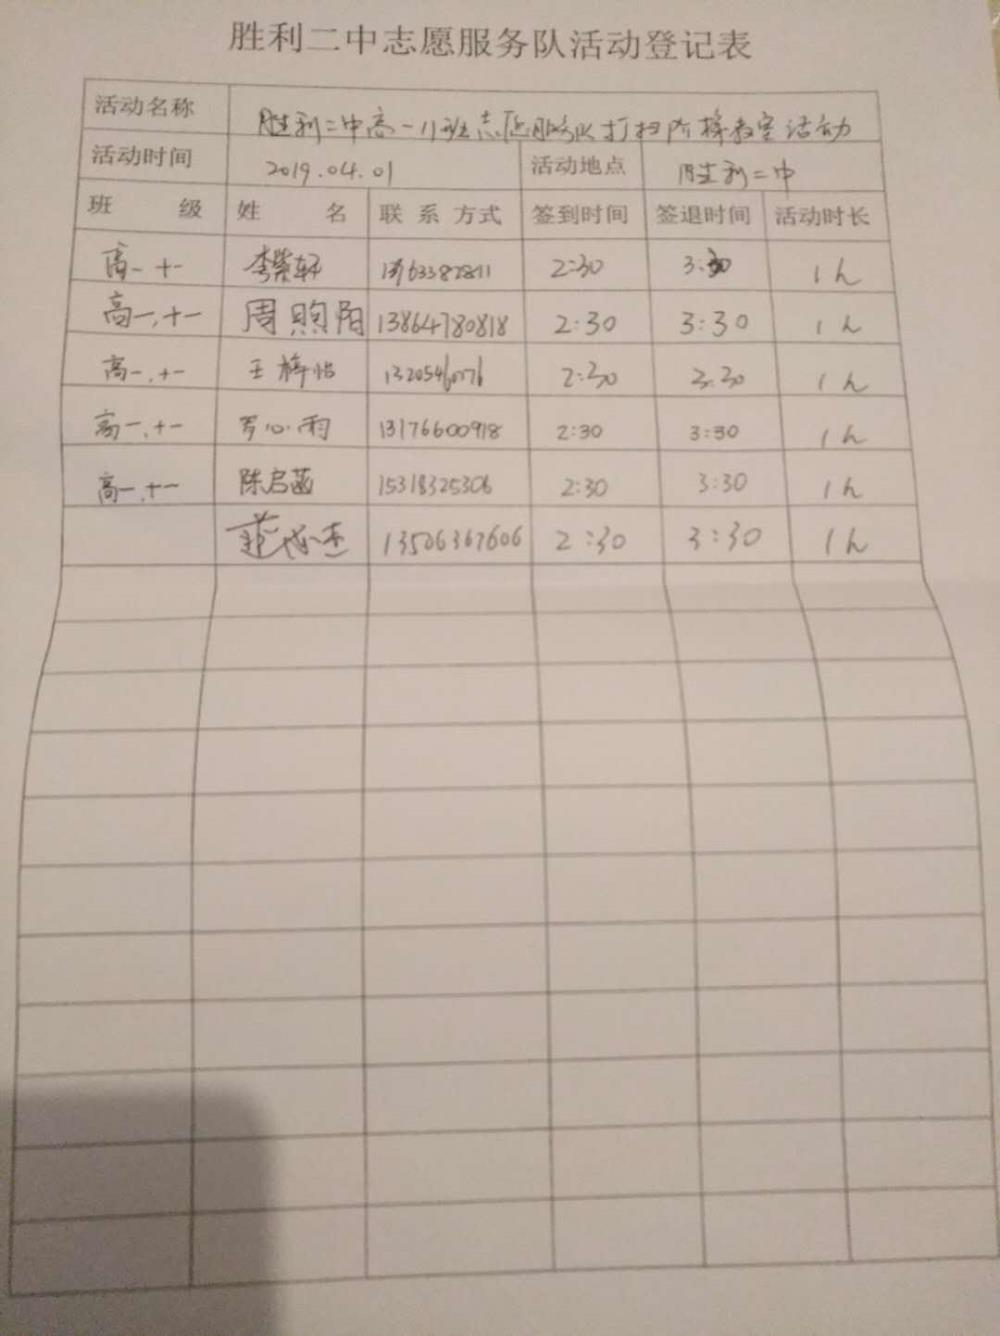 胜利二中志愿服务队活动登记表
活动名称 胜利二中高一11班志愿服务队打扫阶梯教室活动
活动时间 2019.04.01 活动地点 胜利二中
班 级 姓 名 联 系 方式 签到时间 签退时间 活动时长
高一 十一 李紫轩 2:30 3:30 1h
高一,十一 周煦阳 13864780818 2:30 3:30 1h
高一,十一 王梓怡 2:30 3:30 1h
高一,十一 罗心雨 13176600918 2:30 3:30 1h
高一,十一 陈启菡 15318325306 2:30 3:30 1h
13506367606 2:30 3:30 1h